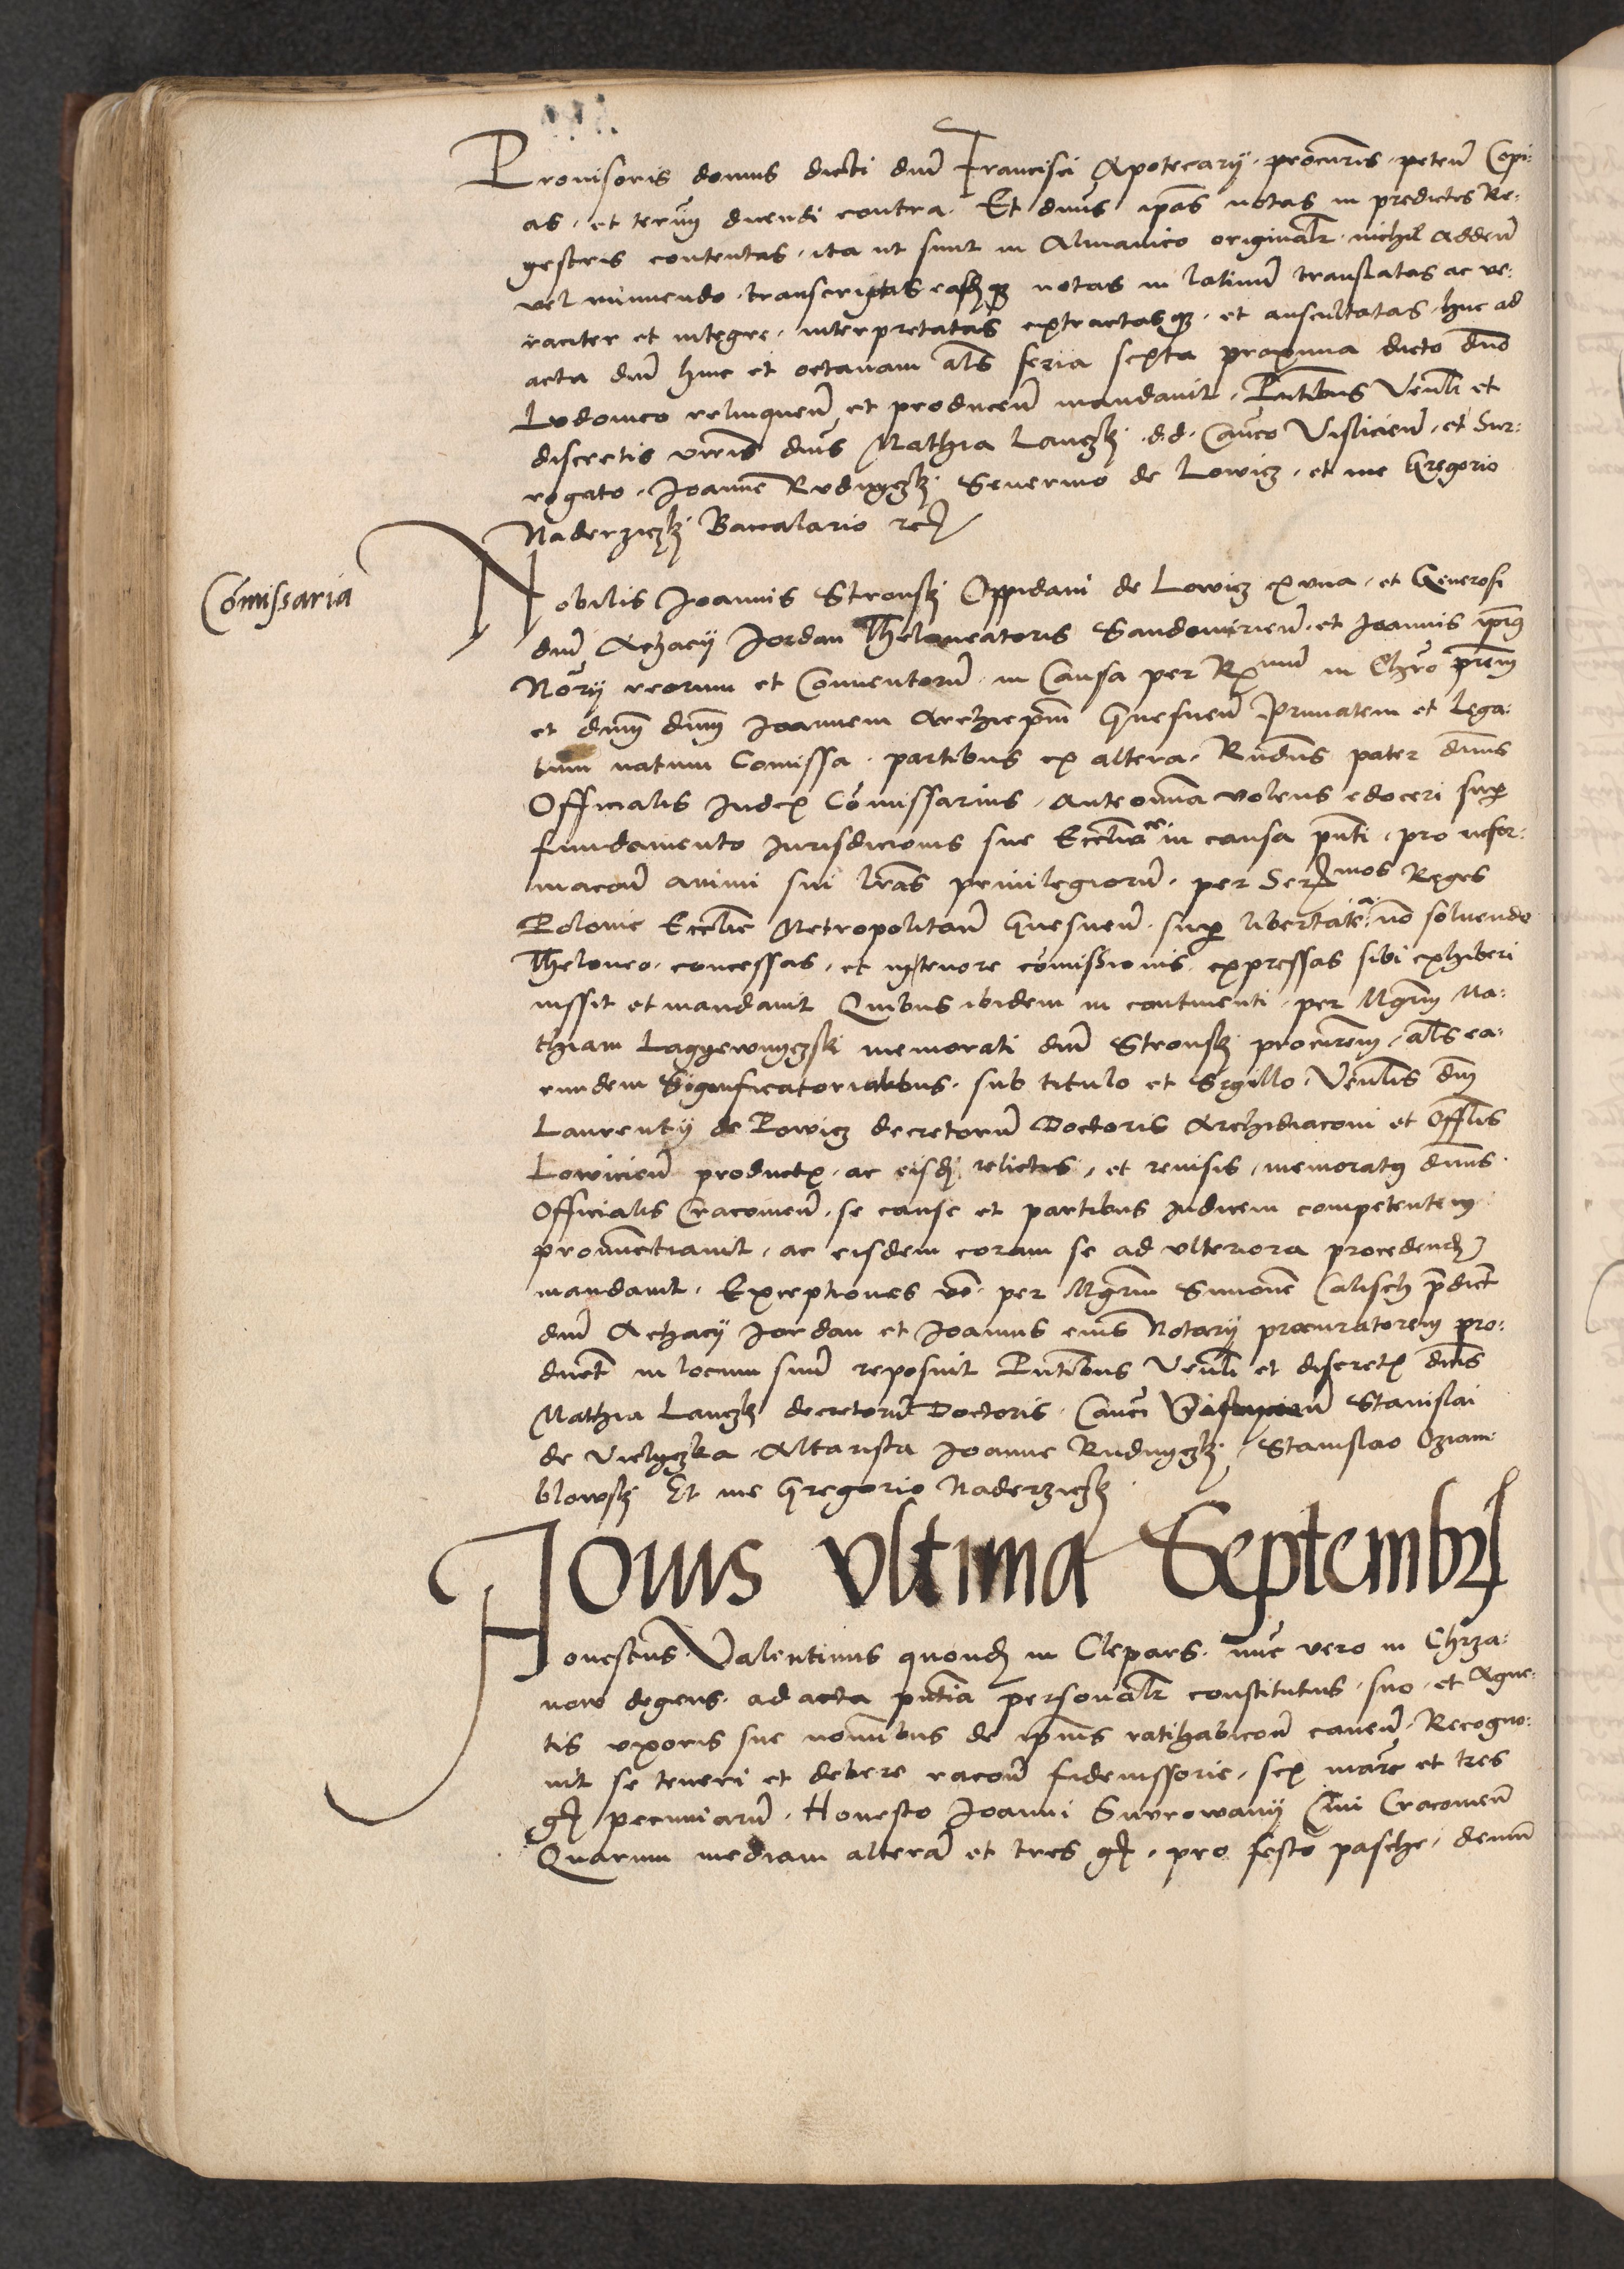 Provisoris domus dicti dni Francisci Apotecarij procuris petent Copi:
as et terum dicendi contra. Et dnus ipas notas in predictis Re:
gestris contentas ita ut sunt in Almanico originalr nichil adden
vel minuendo transcriptas easdque notas in latinu translatas ac ve:
raciter et integre interpretatas extractasque et auscultatas huc ad
acta dni hinc et octavam als feria sexta proxima dicto dno
Ludovico relinquen et producen mandavit. Pntibus Venli et
discretis viris dnis Mathia Lanczk d.d. Canco Vislicien et Sur:
rogato Joanne Rudnyczk Severino de Lowicz et me Gregorio
Naderziczk Baccalario rc
Comissaria
Nobilis Joannis Stronsk Oppidani de Lowicz ex una et Generosi
dni Achacij Jordan Theloneatoris Sandomirien et Joannis ipius
Norij reorum et Conventoru in Causa per Rx mum in Chro prem
et dnm dnm Joannem Archiepm Gnesnen Primatem et Lega:
tum natum Comissa partibus ex altera. Rndus pater dnus
Officialis Judex Comissarius ante omnia volens edoceri sup
fundamento Jurisdicionis sue Ecclie in causa pnti pro infor:
macoe animi sui lras privilegioru per Ser mos Reges
Polonie Ecclie Metropolitan Gnesnen sup libertate no solvendo
Theloneo concessas et in tenore comissionis expressas sibi exhiberi
iussit et mandavit Quibus ibidem in continenti per Mgrm Ma:
thiam Lagyewnyczski memorati dni Stronsk procurem als ea:
rundem Significatorialibus sub titulo et Sigillo Venlis dni
Laurentij de Lowicz decretoru Doctoris Archidiaconi et Offlis
Lowicien productx ac eisd relictis et revisis memoratus dnus
Officialis Cracovien se cause et partibus Judicem competentem
pronunctiavit ac eisdem coram se ad ulteriora procedend
mandavit. Exceptiones vo per Mgrm Simone Calisch pdict
dni Achacij Jordan et Joannis eius Notarij procuratorem pro:
duct in locum suu reposuit Pntibus Venli et discretx dnis
Mathia Lanczk decretoru Doctoris Canci Stanislai
de Vielyczka Altarista Joanne Rudnyczk Stanislao Dziam
blowsk Et me Gregorio Naderziczk
Jovis Ultima Septembr
Honestus Valentinus quond in Clepars nuc vero in Chrza:
now degens ad acta pntia personalr constitutus suo et Agne:
tis uxoris sue nominibus de ipius ratihabicoe caven Recogno:
vit se teneri et debere racoe fideiussorie sex marc et tres
gr pecuniaru Honesto Joanni Surowany Civi Cracovien
Quarum mediam altera et tres gr pro festo pasche demu